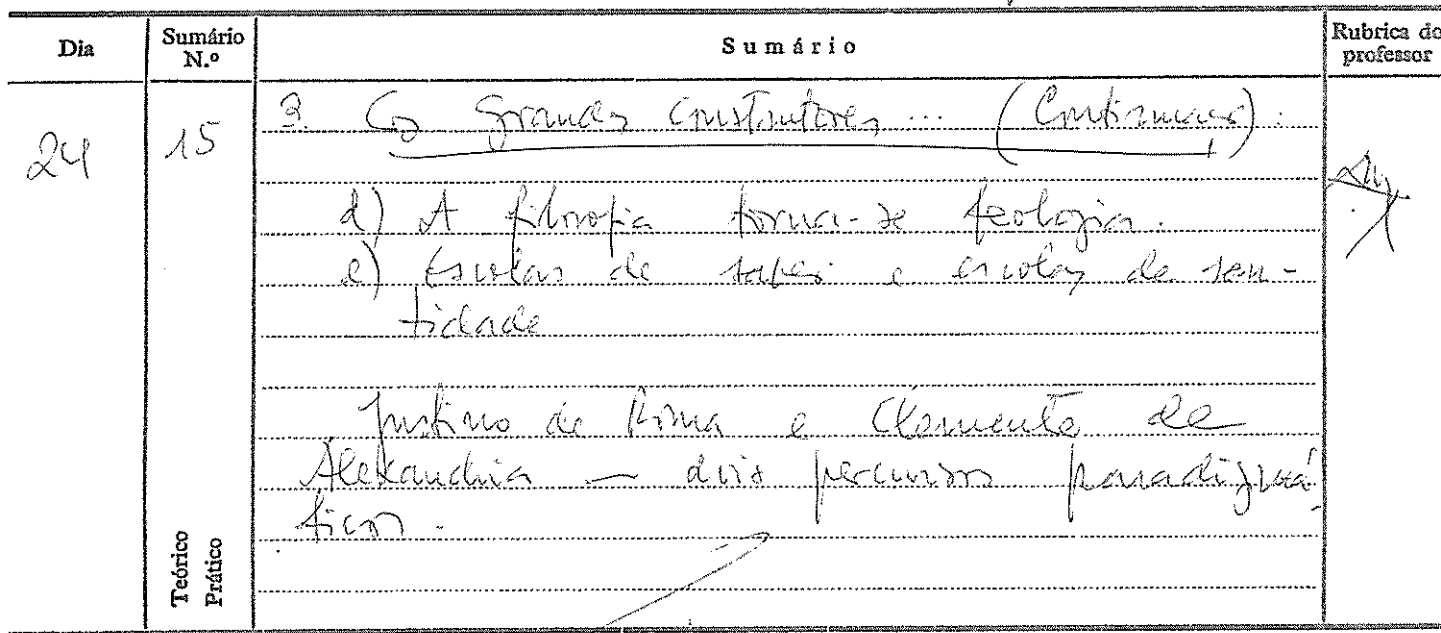 Dia
Sumário N.º
Sumário
Rubrica do professor
24
15
3. Os grandes construtores ... (Continuação).
d) A filosofia torna-se teologia.
e) Escolas de saber e escolas de san-
tidade
Justino de Roma e Clemente de
Alexandria — dois percursos paradigmá-
ticos.
Teórico
Prático